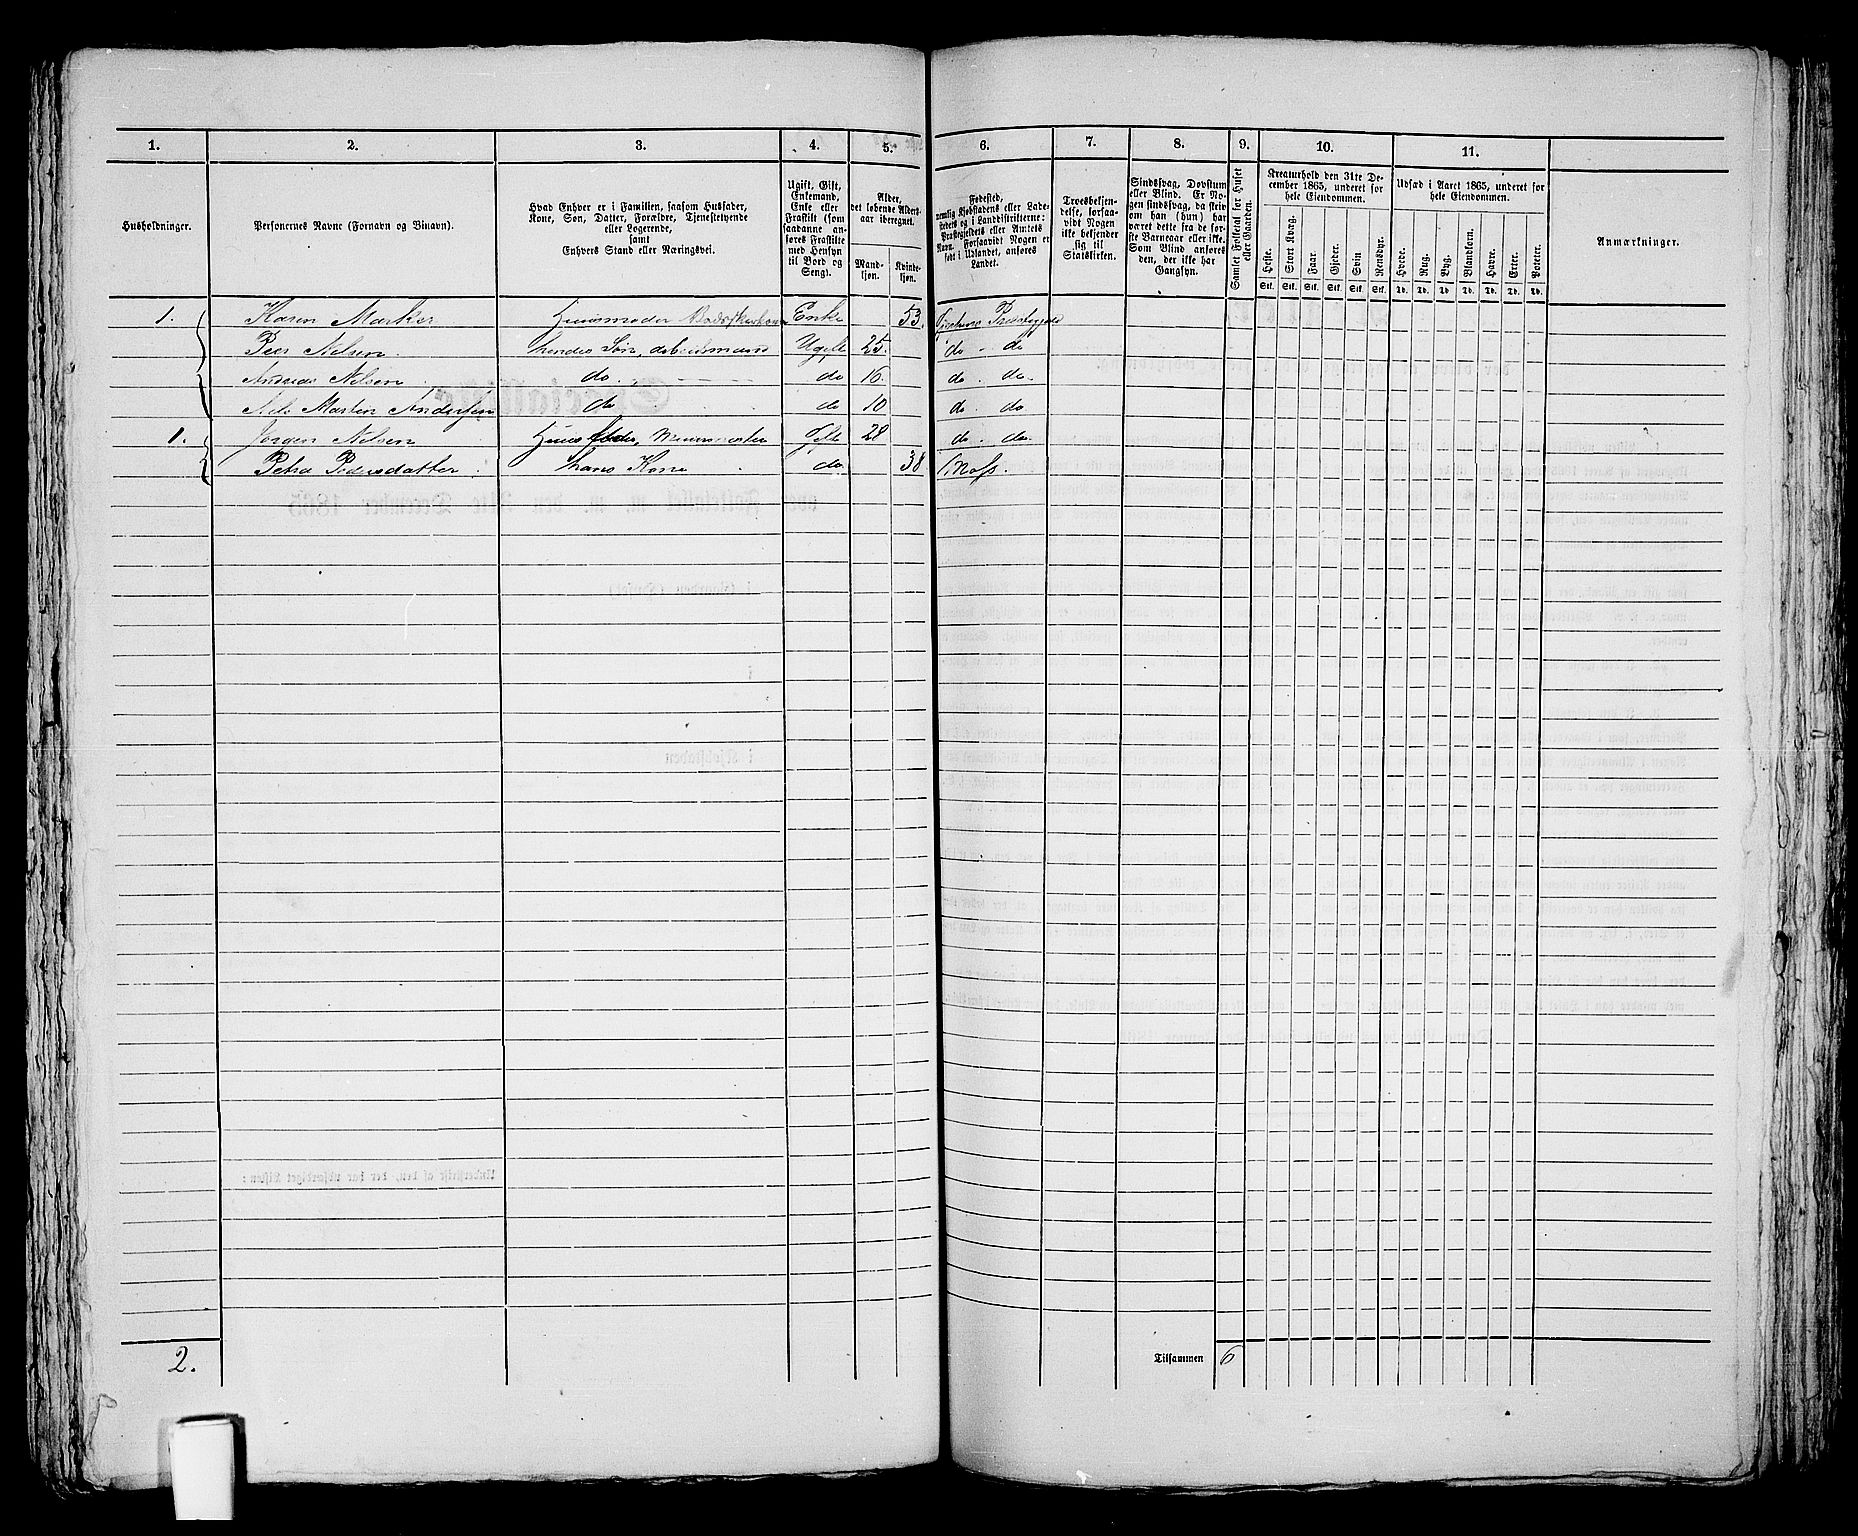 1. 2. 3. 4. 5. 6. 7. 8. 9. 10. 11.
Husholdninger.
Personernes Navne (Fornavn og Binavn).
Hvad Enhver er i Familien, saasom Husfader,
Kone, Søn, Datter, Forældre, Tjenestetyende
eller Logerende,
samt
Enhvers Stand eller Næringsvei.
Ugift, Gift,
Enkemand,
Enke eller
Fraskilt (som
saadanne an-
føres Fraskilte
med Hensyn
til Bord og
Seng).
Alder,
det løbende Alders-
aar iberegnet.
Mand-
kjøn.
Kvinde-
kjøn.
Fødested,
nemlig Kjøbstadens eller Lade-
stedets og i Landdistrikterne:
Præstegjeldets eller Amtets
Navn. Forsaavidt Nogen er
født i Udlandet, anføres
Landet.
Troesbekjen-
delse, forsaa-
vidt Nogen
ikke bekjender
sig til
Statskirken.
Sindssvag, Døvstum
eller Blind. Er No-
gen sindssvag, da skriv
om han (hun) har
været dette fra de før-
ste Barneaar eller ikke.
Som Blind anføres
den, der ikke har
Gangsyn.
Samlet Folketal for Huset
eller Gaarden.
Kreaturhold den 31te De-
cember 1865, underet for
hele Eiendommen.
Heste. Stort Kvæg. Faar. Gjeder. Svin Rensdyr.
Stk. Stk. Stk. Stk. Stk. Stk.
Udsæd i Aaret 1865, underet for
hele Eiendommen.
Hvede. Rug. Byg. Blandkorn. Havre. Erter. Poteter.
Td. Td. Td. Td. Td. Td. Td.
Anmærkninger.
1. Karen Marker Huusmoder Enke 53.
Peer Nelsen. hendes Søn, arbeidsmand Ugift 25. do. do
Andreas Nelsen do. do 16. do. do.
Nels Martin Andersen do do 10 do. do
1. Jørgen Nelsen Huusfader, Muurmester Gift 28 do. do.
Petra Pedersdatter. hans Kone do. 38 Moss.
2.
Tilsammen 6